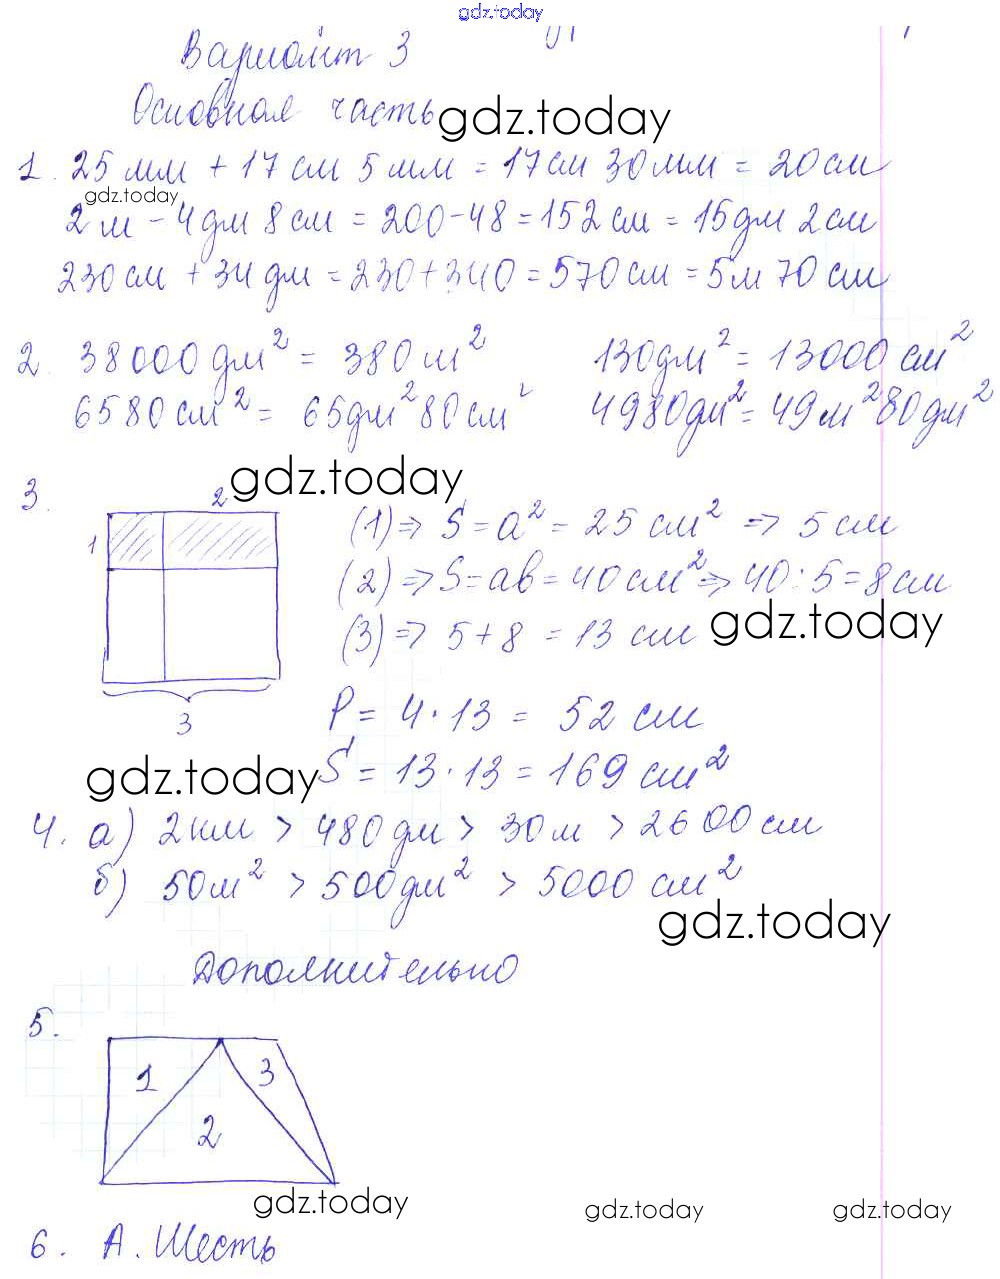 gdz.today
Вариант 3
Основная часть gdz.today
1. 25 мм + 17 см 5 мм = 17 см 30 мм = 20 см
gdz.today
2 м - 4 дм 8 см = 200 - 48 = 152 см = 15 дм 2 см
230 см + 34 дм = 230 + 340 = 570 см = 5 м 70 см
2. 38000 дм² = 380 м² 130 дм² = 13000 см²
6580 см² = 65 дм² 80 см² 4980 дм² = 49 м² 80 дм²
gdz.today
3.
2
1
3
(1) => S = a² = 25 см² => 5 см
(2) => S = ab = 40 см² => 40 : 5 = 8 см
(3) => 5 + 8 = 13 см gdz.today
P = 4 · 13 = 52 см
gdz.today S = 13 · 13 = 169 см²
4. а) 2 км > 480 дм > 30 м > 2600 см
б) 50 м² > 500 дм² > 5000 см²
gdz.today
Дополнительно
5.
1 3
2
gdz.today gdz.today gdz.today
6. А. Шесть